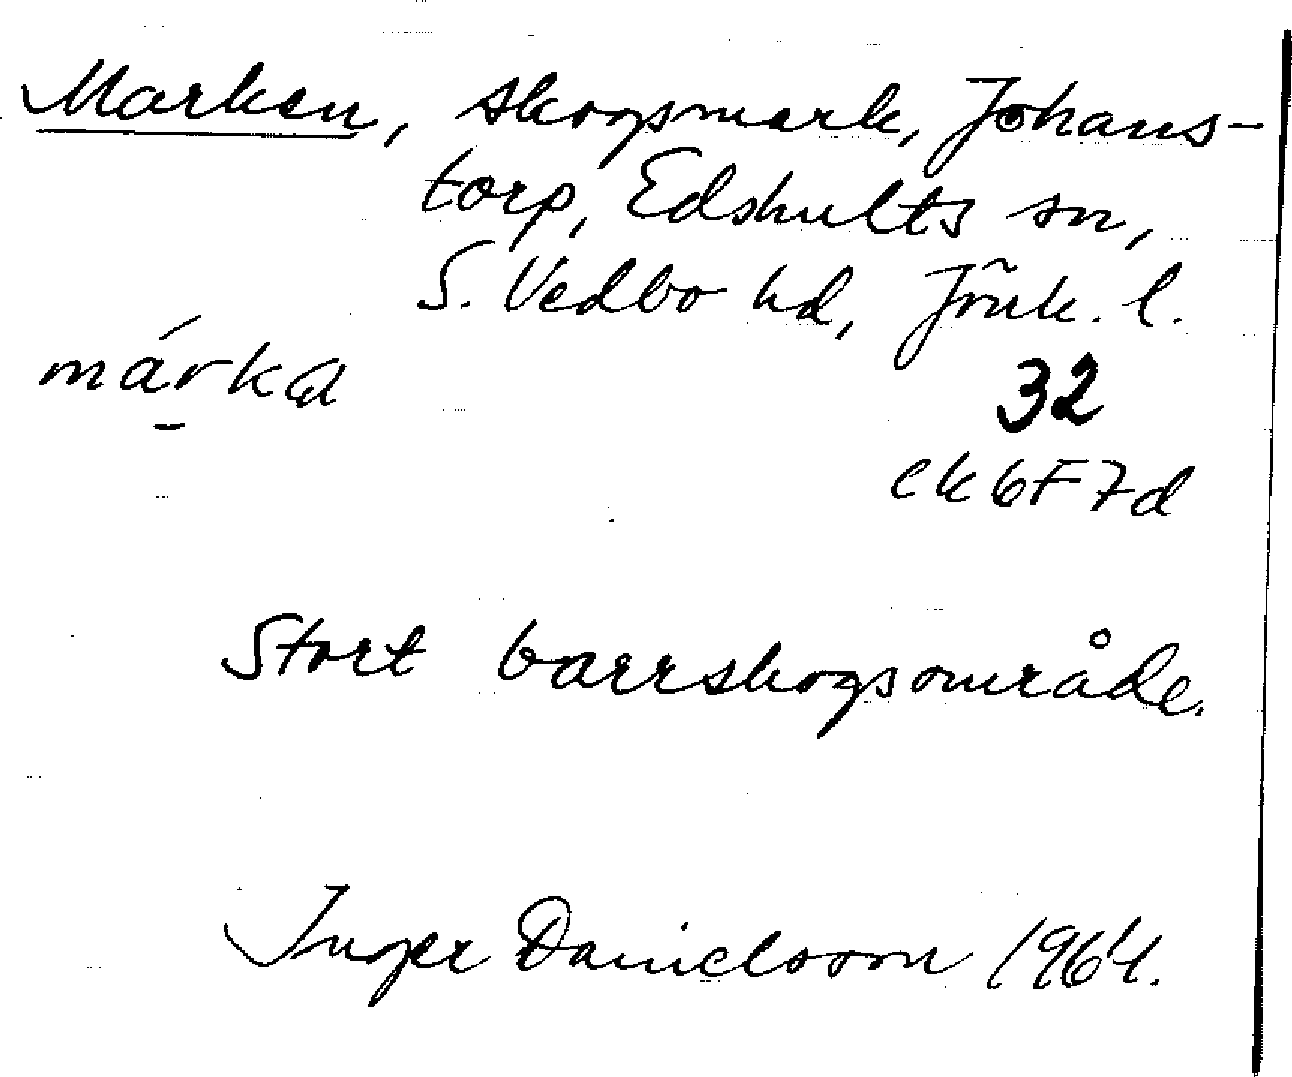 Marken, skogsmark, Johans-
torp, Edshults sn,
S. Vedbo hd, Jönk. l.
márka
32
ek 6F7d
Stort barrskogsområde.
Inger Danielsson 1964.